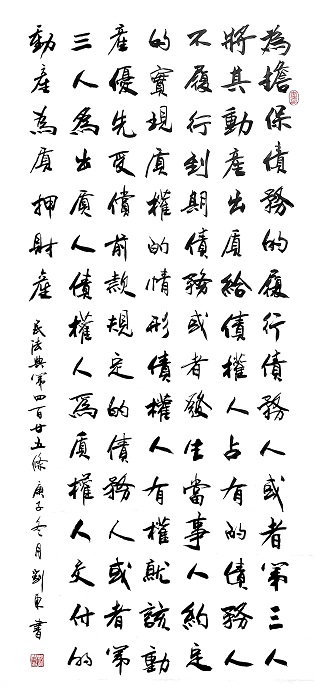 為擔保債務的履行債務人或者第三人
將其動產出質給債權人占有的債務人
不履行到期債務或者發生當事人約定
的實現質權的情形債權人有權就該動
產優先受償前款規定的債務人或者第
三人為出質人債權人為質權人交付的
動產為質押財產
民法典第四百廿五條庚子冬月劉東書